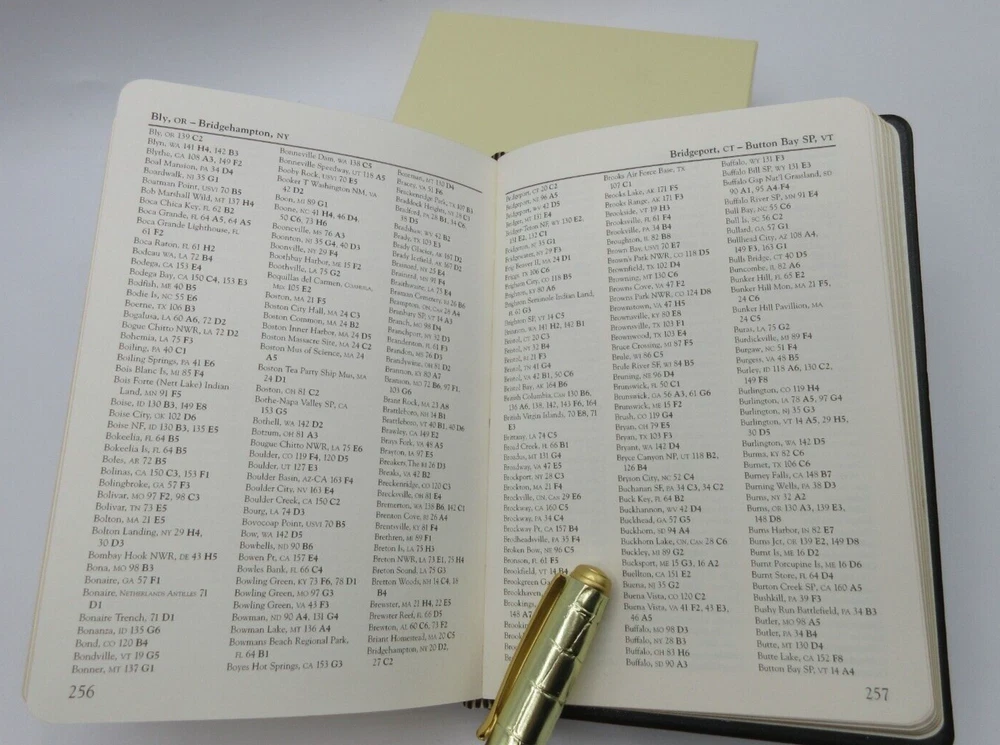 Bly, OR – Bridgehampton, NY
Bly, OR 139 C2
Blyn, WA 141 H4, 142 B3
Blythe, CA 108 A3, 149 F2
Boal Mansion, PA 34 D4
Boardwalk, NJ 35 G1
Boarman Point, USVI 70 B5
Bob Marshall Wild, MT 137 H4
Boca Chica Key, FL 62 B2
Boca Grande, FL 64 A5, 64 A5
Boca Grande Lighthouse, FL
61 F2
Boca Raton, FL 61 H2
Bodeau WA, LA 72 B4
Bodega, CA 153 E4
Bodega Bay, CA 150 C4, 153 E3
Bodfish, ME 40 B5
Bodie Is, NC 55 E6
Boerne, TX 106 B3
Bogalusa, LA 60 A6, 72 D2
Bogue Chitto NWR, LA 72 D2
Bohemia, LA 75 F3
Boiling, PA 40 C1
Boiling Springs, PA 41 E6
Bois Blanc Is, MI 85 F4
Bois Forte (Nett Lake) Indian
Land, MN 91 F5
Boise, ID 130 B3, 149 E8
Boise City, OK 102 D6
Boise NF, ID 130 B3, 135 E5
Bokeelia, FL 64 B5
Bokeelia Is, FL 64 B5
Boles, AR 72 B5
Bolinas, CA 150 C3, 153 F1
Bolingbroke, GA 57 F3
Bolivar, MO 97 F2, 98 C3
Bolivar, TN 73 E5
Bolton, MA 21 E5
Bolton Landing, NY 29 H4,
30 D3
Bombay Hook NWR, DE 43 H5
Bona, MO 98 B3
Bonaire, GA 57 F1
Bonaire, NETHERLANDS ANTILLES 71
D1
Bonaire Trench, 71 D1
Bonanza, ID 135 G6
Bond, CO 120 B4
Bondville, VT 19 G5
Bonner, MT 137 G1
Bonneville Dam, WA 138 C5
Bonneville Speedway, UT 118 A5
Booby Rock, USVI 70 E5
Booker T Washington NM, VA
42 D2
Boon, MI 89 G1
Boone, NC 41 H4, 46 D4,
50 C6, 73 H6
Booneville, MS 76 A3
Boonton, NJ 35 G4, 40 D3
Boonville, NY 29 F4
Boothbay Harbor, ME 15 F2
Boothville, LA 75 G2
Boquillas del Carmen, COAHUILA,
MEX 105 E2
Boston, MA 21 F5
Boston City Hall, MA 24 C3
Boston Common, MA 24 B2
Boston Inner Harbor, MA 24 D5
Boston Massacre Site, MA 24 C2
Boston Mus of Science, MA 24
A5
Boston Tea Party Ship Mus, MA
24 D1
Boston, OH 81 C2
Bothe-Napa Valley SP, CA
153 G5
Bothell, WA 142 D2
Botzum, OH 81 A3
Bougue Chitto NWR, LA 75 E6
Boulder, CO 119 F4, 120 D5
Boulder, UT 127 E3
Boulder Basin, AZ-CA 163 F4
Boulder City, NV 163 E4
Boulder Creek, CA 150 C2
Bourg, LA 74 D3
Bovocoap Point, USVI 70 B5
Bow, WA 142 D5
Bowbells, ND 90 B6
Bowen Pt, CA 157 E4
Bowles Bank, FL 66 C4
Bowling Green, KY 73 F6, 78 D1
Bowling Green, MO 97 G3
Bowling Green, VA 43 F3
Bowman, ND 90 A4, 131 G4
Bowman Lake, MT 136 A4
Bowmans Beach Regional Park,
FL 64 B1
Boyes Hot Springs, CA 153 G3
Bozeman, MT 132 D4
Bracey, VA 51 F6
Breckenridge Park, TX 107 B3
Braddock Heights, VA 28 C3
Bradford, PA 28 B1, 34 C6,
35 D5
Bradshaw, WV 42 B2
Brady, TX 103 E3
Brady Glacier, AK 167 D1
Brady Icefield, AK 167 D2
Brainard, NY 23 E4
Brainerd, MN 91 F4
Braithwaite, LA 75 E4
Brampton, ON, CAN 28 A4
Branch, MI 98 D4
Branchport, NY 32 D3
Brandenton, FL 61 F3
Brandon, MS 76 D3
Brandywine, OH 81 D2
Brannon, KY 80 A7
Branson, MO 72 B6, 97 F1,
103 G6
Brant Rock, MA 23 A8
Brattleboro, NH 14 B1
Brattleboro, VT 40 B1, 40 D6
Brawley, CA 149 E2
Brays Fork, VA 48 A5
Brayton, IA 97 E5
Breakers The RI 26 D3
Breaks, VA 42 B2
Breckenridge, CO 120 C3
Brecksville, OH 81 E4
Bremerton, WA 138 B6, 142 C1
Brenton Cove, RI 26 A4
Brentsville, KY 81 F4
Brethren, MI 89 F1
Breton Is, LA 75 H3
Breton NWR, LA 73 E1, 75 H4
Breton Sound, LA 75 G3
Bretton Woods, NH 14 C4, 18
B4
Brewster, MA 21 H4, 22 E5
Brewster Reef, FL 66 D5
Brewton, AL 60 C6, 73 F2
Briant Homestead, MA 20 C5
Bridgehampton, NY 20 D2,
27 C2
256
Bridgeport, CT – Button Bay SP, VT
Bridgeport, CT 20 C2
Bridgeport, NE 96 A5
Bridgeport, WV 42 D5
Bridger, MT 131 E4
Bridger-Teton NF, WY 130 E2,
131 E2, 132 C1
Bridgeton, NJ 35 G1
Bridgewater, NY 29 F3
Brig Bower II, MA 24 D1
Briggs, TX 106 C6
Brigham City, CO 118 B5
Brighton, KY 80 A6
Brighton Seminole Indian Land,
FL 61 G3
Brighton SP, VT 14 C5
Brinnon, WA 141 H2, 142 B1
Bristol, CT 20 C3
Bristol, NY 32 B4
Bristol, RI 21 F3
Bristol, TN 41 G4
Bristol, VA 42 B1, 50 C6
Bristol Bay, AK 164 B6
British Columbia, CAN 130 B6,
136 A6, 138, 142, 143 F6, 164
British Virgin Islands, 70 E8, 71
E3
Brittany, LA 74 C5
Broad Creek, FL 66 B1
Broadus, MT 131 G4
Broadway, VA 47 E5
Brockport, NY 28 C3
Brockton, MA 21 F4
Brockville, ON, CAN 29 E6
Brockway, CA 160 C5
Brockway, PA 34 C4
Brockway Pt, CA 157 B4
Brodheadsville, PA 35 F4
Broken Bow, NE 96 C5
Bronson, FL 61 F5
Brookfield, VT 14 B4
Brookgreen Ga
Brookhaven,
Brookings,
148 A7
Brooks Air Force Base, TX
107 C1
Brooks Lake, AK 171 F5
Brooks Range, AK 171 F3
Brookside, VT 19 H3
Brooksville, FL 61 F4
Brookville, PA 34 B4
Broughton, IL 82 B8
Brown Bay, USVI 70 E7
Brown's Park NWR, CO 118 D5
Brownfield, TX 102 D4
Browning, MT 130 C6
Browns Cove, VA 47 F2
Browns Park NWR, CO 124 D8
Brownstown, VA 47 H5
Brownsville, KY 80 E8
Brownsville, TX 103 F1
Brownwood, TX 103 E4
Bruce Crossing, MI 87 F5
Brule, WI 86 C5
Brule River SF, WI 84 B5
Bruning, NE 96 D4
Brunswick, FL 50 C1
Brunswick, GA 56 A3, 61 G6
Brunswick, ME 15 F2
Brush, CO 119 G4
Bryan, OH 79 E5
Bryan, TX 103 F3
Bryant, WA 142 D4
Bryce Canyon NF, UT 118 B2,
126 B4
Bryson City, NC 52 C4
Buchanan SF, PA 34 C3, 34 C2
Buck Key, FL 64 B2
Buckhannon, WV 42 D4
Buckhead, GA 57 G5
Buckhorn, SD 94 A4
Buckhorn Lake, ON, CAN 28 C6
Buckley, MI 89 G2
Bucksport, ME 15 G3, 16 A2
Buellton, CA 151 E2
Buena, NJ 35 G2
Buena Vista, CO 120 C2
Buena Vista, VA 41 F2, 43 E3,
46 A5
Buffalo, MO 98 D3
Buffalo, NY 28 B3
Buffalo, OH 83 H6
Buffalo, SD 90 A3
Buffalo, WY 131 F3
Buffalo Bill SP, WY 131 E3
Buffalo Gap Nat'l Grassland, SD
90 A1, 95 A4-F4
Buffalo River SP, MN 91 E4
Bull Bay, NC 55 C6
Bull Is, NC 56 C2
Bullard, GA 57 G1
Bullhead City, AZ 108 A4,
149 F3, 163 G1
Bulls Bridge, CT 40 D5
Buncombe, IL 82 A6
Bunker Hill, FL 65 E2
Bunker Hill Mon, MA 21 F5,
24 C6
Bunker Hill Pavillion, MA
24 C5
Buras, LA 75 G2
Burdickville, MI 89 F4
Burgaw, NC 51 F4
Burgess, VA 48 B5
Burley, ID 118 A6, 130 C2,
149 F8
Burlington, CO 119 H4
Burlington, IA 78 A5, 97 G4
Burlington, NJ 35 G3
Burlington, VT 14 A5, 29 H5,
30 D5
Burlington, WA 142 D5
Burma, KY 82 C6
Burnet, TX 106 C6
Burney Falls, CA 148 B7
Burning Wells, PA 38 D3
Burns, NY 32 A2
Burns, OR 130 A3, 139 E3,
148 D8
Burns Harbor, IN 82 E7
Burns Jct, OR 139 E2, 149 D8
Burnt Is, ME 16 D2
Burnt Porcupine Is, ME 16 D6
Burnt Store, FL 64 D4
Burton Creek SP, CA 160 A5
Bushkill, PA 39 F3
Bushy Run Battlefield, PA 34 B3
Butler, MO 98 A5
Butler, PA 34 B4
Butte, MT 130 D4
Butte Lake, CA 152 F8
Button Bay SP, VT 14 A4
257